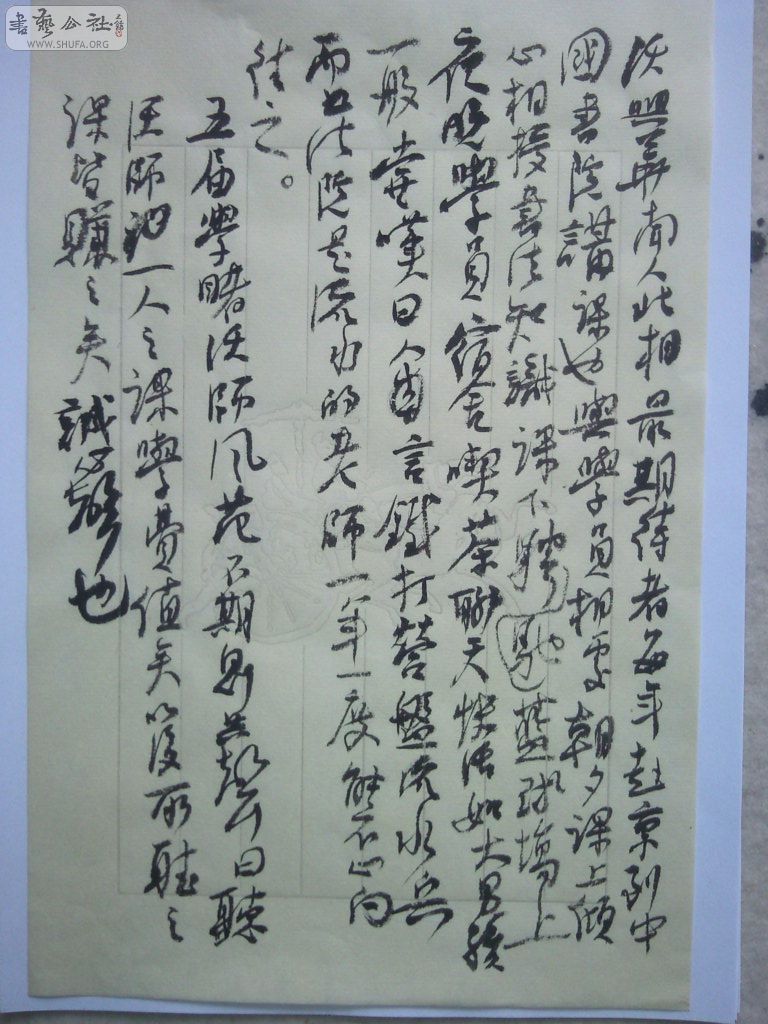 書藝公社
WWW.SHUFA.ORG
沃興華南人此相最期待者每年赴京到中
國書院講課也與學員相處朝夕課上傾
心相授書法知識課下騁馳籃球場上
夜晚學員宿舍喫茶聊天快活如大男孩
一般嘗嘆曰人常言鐵打營盤流水兵
而書法院是流水的老師一年一度能不心向
往之。
五屆學睹沃師風范不期與曰聽
沃師一人之課學費值矣以後所聽之
課皆賺之矣誠也